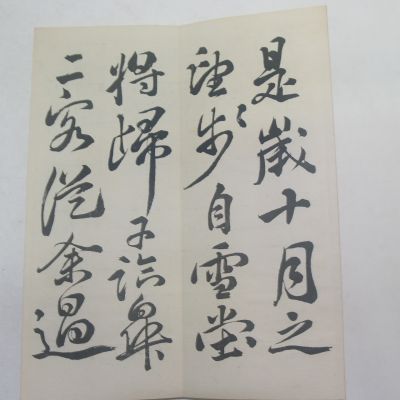 是歲十月之
望步自雪堂
將歸于臨皋
二客從余過